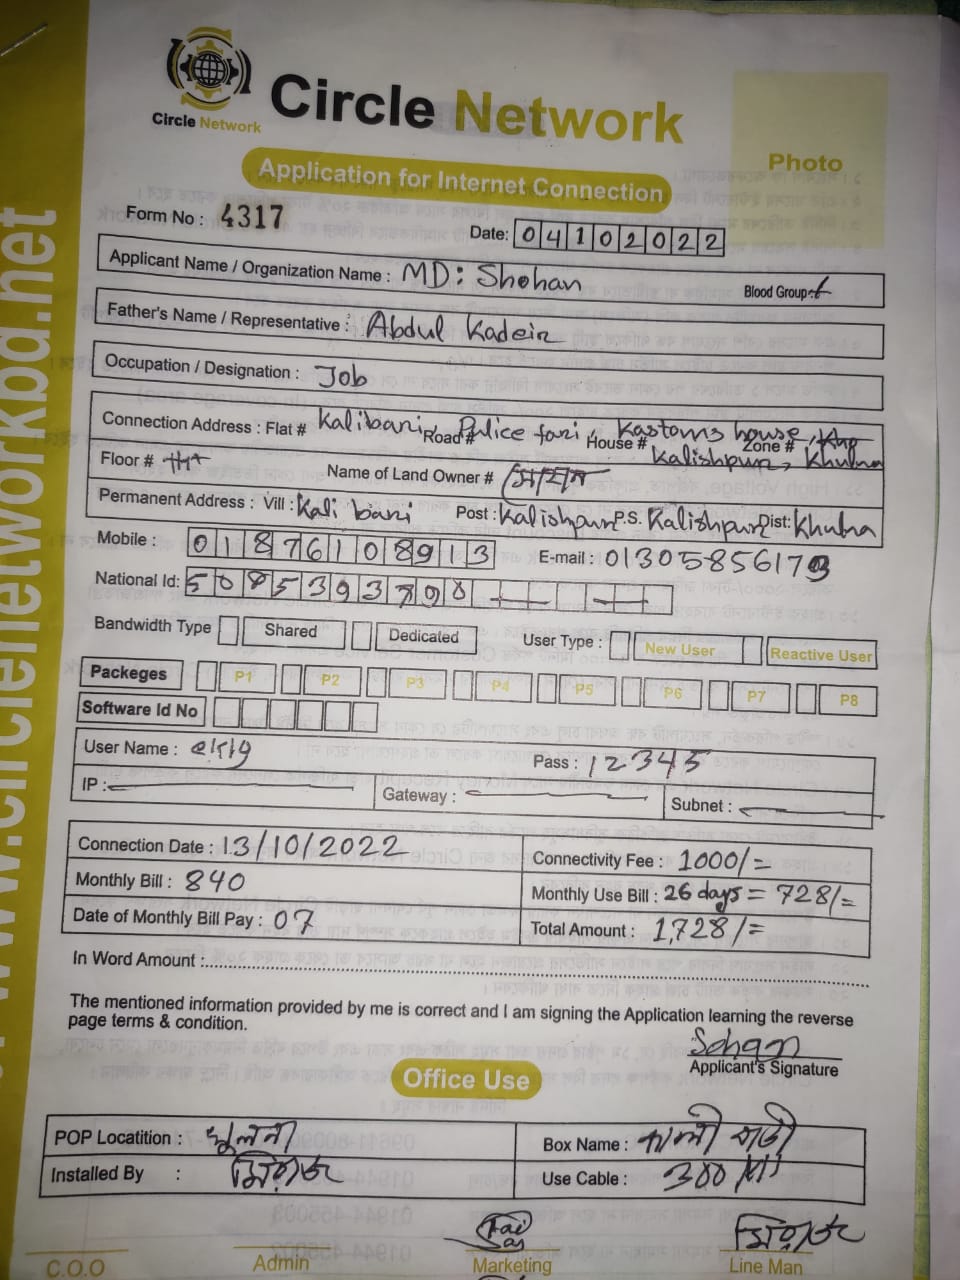 www.circlenetworkbd.net
Circle Network
Circle Network
Photo
Application for Internet Connection
Form No : 4317
Date: 04102022
Applicant Name / Organization Name : MD: Shohan
Blood Group:
Father's Name / Representative : Abdul Kadeir
Occupation / Designation : Job
Connection Address : Flat # Kalibari Road # Police fari House # Kastoms house, Zone #
Kalishpur, Khulna
Floor # Name of Land Owner #
Permanent Address : Vill : Kali bari Post : Kalishpur P.S. Kalishpur Dist: Khulna
Mobile : 01876108913 E-mail : 01305856179
National Id: 5085393798
Bandwidth Type Shared Dedicated User Type : New User Reactive User
Packeges P1 P2 P3 P4 P5 P6 P7 P8
Software Id No
User Name : Pass : 12345
IP : Gateway : Subnet :
Connection Date : 13/10/2022 Connectivity Fee : 1000/=
Monthly Bill : 840 Monthly Use Bill : 26 days = 728/=
Date of Monthly Bill Pay : 07 Total Amount : 1,728/=
In Word Amount :
The mentioned information provided by me is correct and I am signing the Application learning the reverse
page terms & condition.
Sohan
Applicant's Signature
Office Use
POP Locatition : খুলনা Box Name : কালী বাড়ী
Installed By : মিরাজ Use Cable : 300
মিরাজ
C.O.O Admin Marketing Line Man